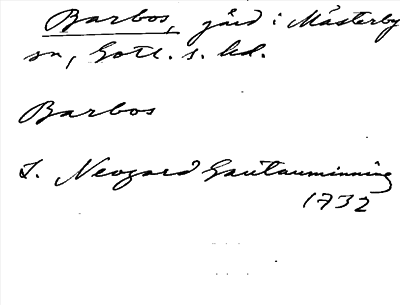 Barbos, gård i Mästerby
sn, Gotl. s. hd.
Barbos
J. Neogard Gautauminning
1732